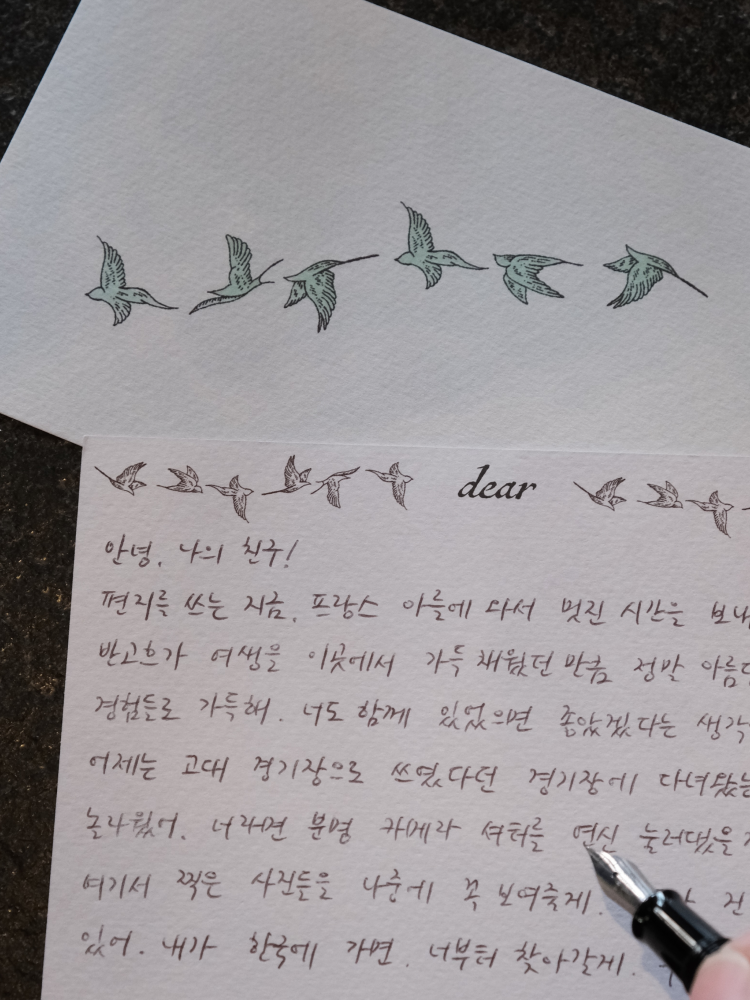 dear
안녕, 나의 친구!
편지를 쓰는 지금, 프랑스 아를에 와서 멋진 시간을
반고흐가 여생을 이곳에서 가득 채웠던 만큼 정말
경험들로 가득해. 너도 함께 있었으면 좋았겠다는
어제는 고대 경기장으로 쓰였다던 경기장에
놀라웠어. 너라면 분명 카메라 셔터를 연신
여기서 찍은 사진들을 나중에 꼭 보여줄게.
있어. 내가 한국에 가면, 너부터 찾아갈게.